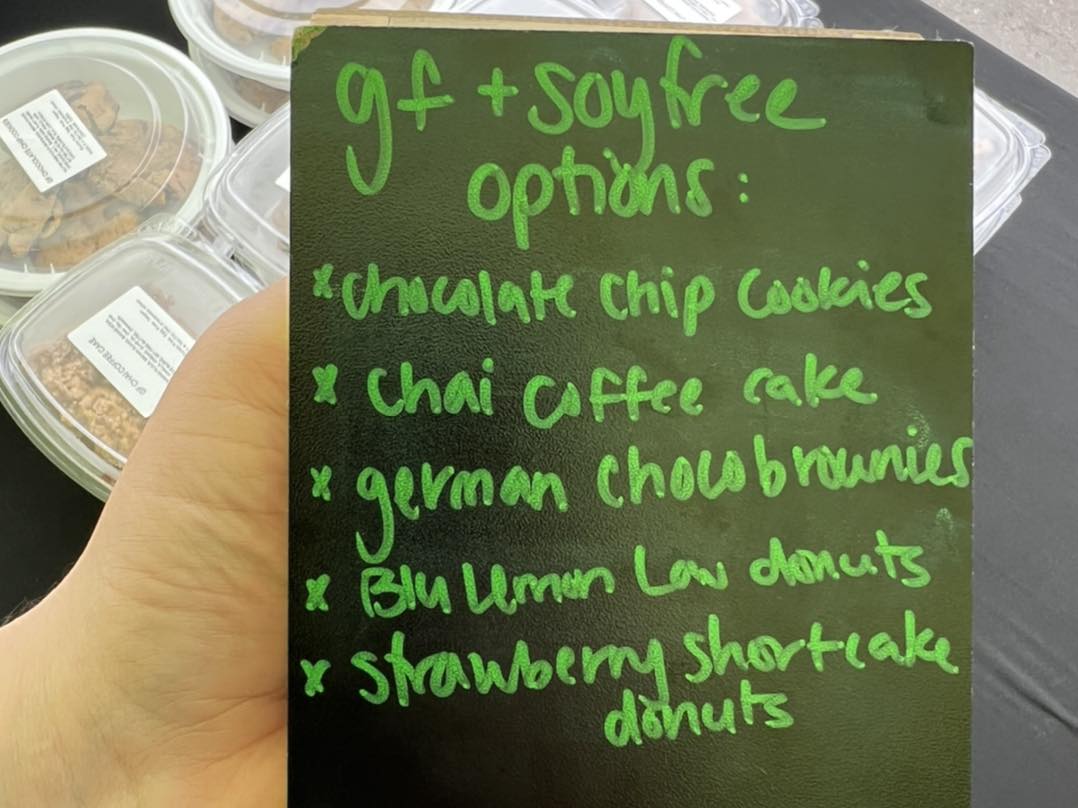 gf + soy free
options:
x chocolate chip cookies
x chai coffee cake
x german choco brownies
x Blu Lemon Lav donuts
x strawberry shortcake
donuts
GF CHOCOLATE CHIP COOKIES
GF CHAI COFFEE CAKE